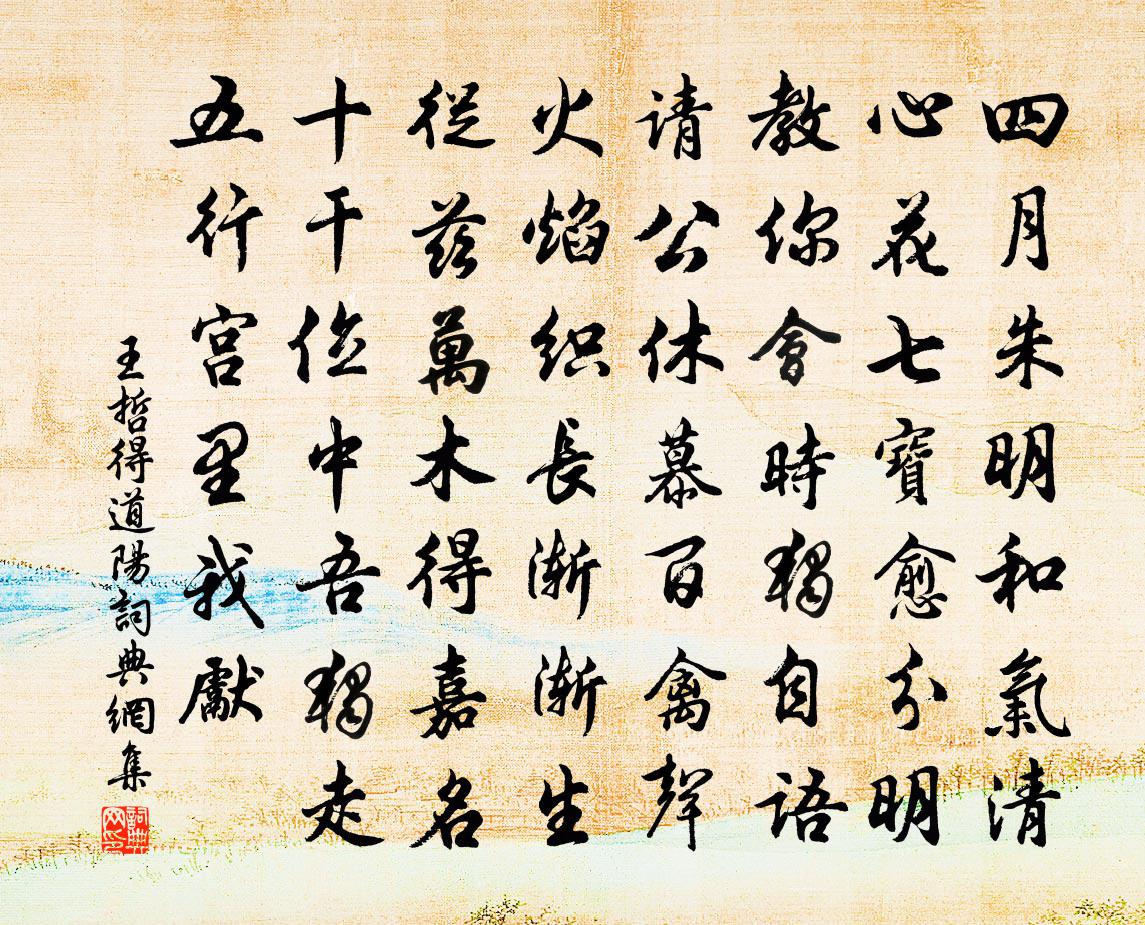 四月朱明和氣清
心花七寶愈分明
教你會時獨自語
请公休慕百禽聲
火焰织長渐渐生
從兹萬木得嘉名
十干俭中吾獨走
五行宫里我獻
王哲得道陽詞典網集
詞典网印